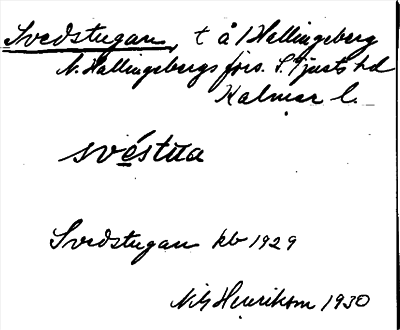 Svedstugan, t å 1 Hallingeberg
N. Hallingebergs förs. S. Tjusts hd
Kalmar l.
svéstua
Svedstugan kb 1929
Nils Henrikson 1930